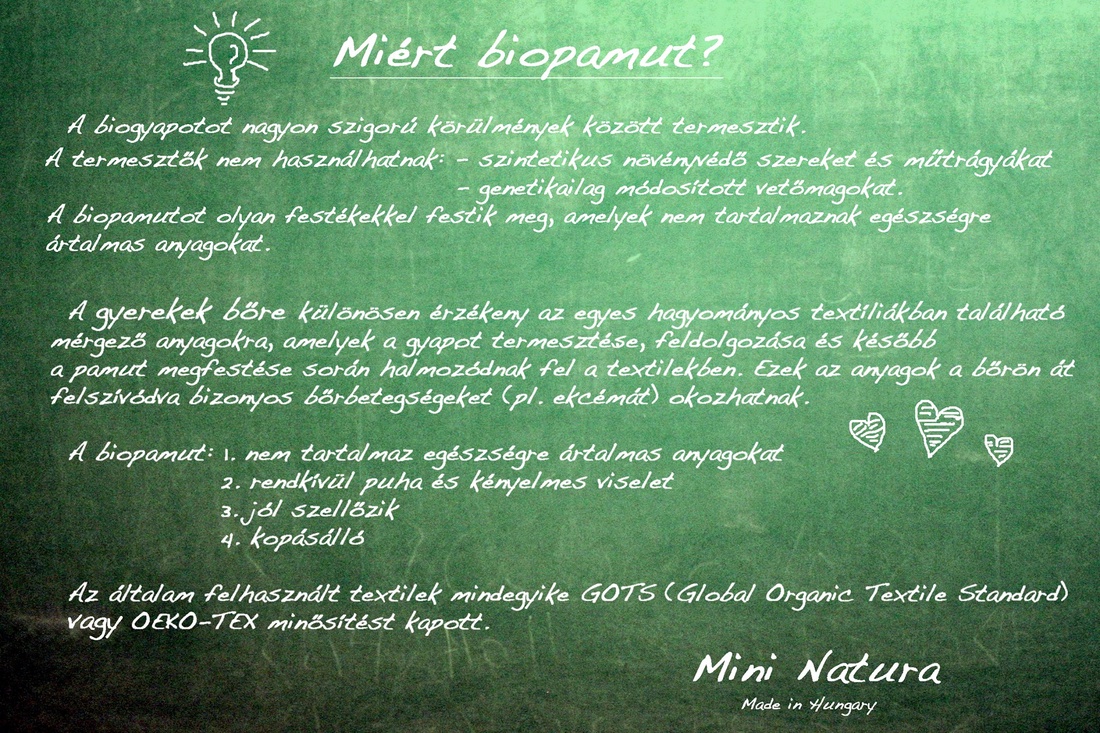 Miért biopamut?
A biogyapotot nagyon szigorú körülmények között termesztik.
A termesztők nem használhatnak: - szintetikus növényvédő szereket és műtrágyákat
- genetikailag módosított vetőmagokat.
A biopamutot olyan festékekkel festik meg, amelyek nem tartalmaznak egészségre
ártalmas anyagokat.
A gyerekek bőre különösen érzékeny az egyes hagyományos textíliákban található
mérgező anyagokra, amelyek a gyapot termesztése, feldolgozása és később
a pamut megfestése során halmozódnak fel a textilekben. Ezek az anyagok a bőrön át
felszívódva bizonyos bőrbetegségeket (pl. ekcémát) okozhatnak.
A biopamut: 1. nem tartalmaz egészségre ártalmas anyagokat
2. rendkívül puha és kényelmes viselet
3. jól szellőzik
4. kopásálló
Az általam felhasznált textilek mindegyike GOTS (Global Organic Textile Standard)
vagy OEKO-TEX minősítést kapott.
Mini Natura
Made in Hungary